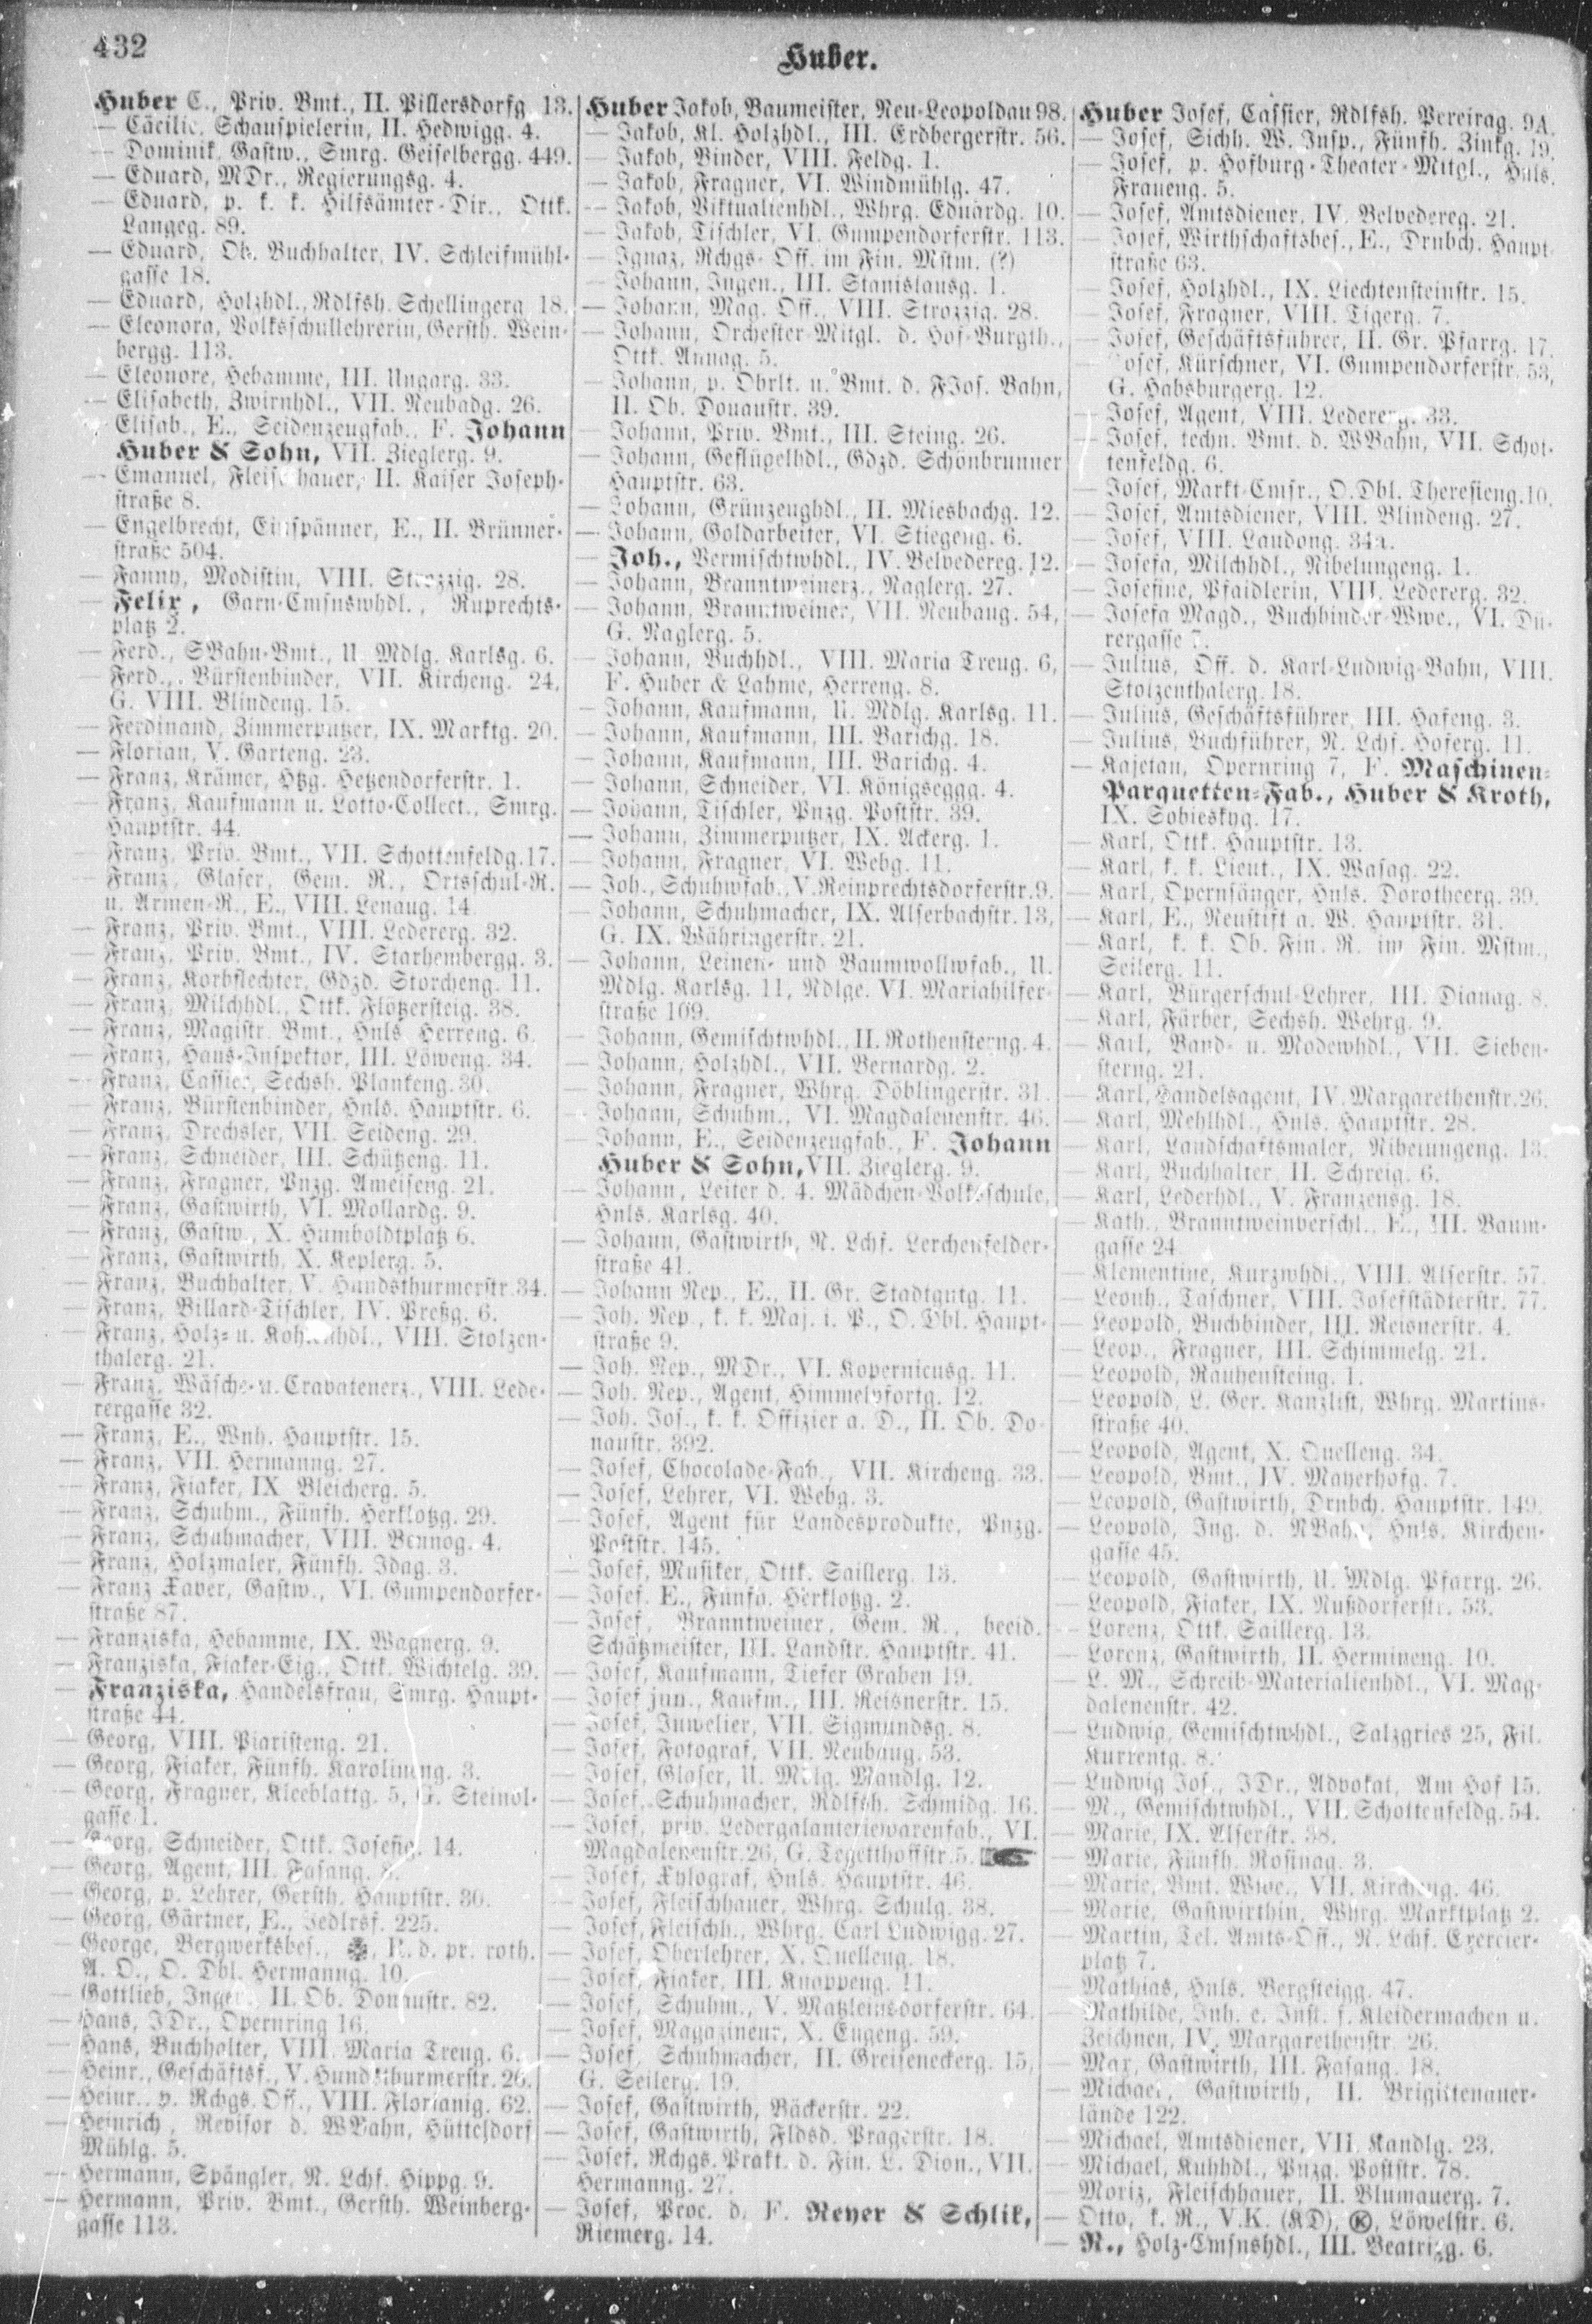 432
Huber.
Huber C., Priv. Bmt., II. Pillersdorfg. 13.
— Cäcilie, Schauspielerin, II. Hedwigg. 4.
— Dominik, Gastw., Smrg. Geiselbergg. 449.
— Eduard, MDr., Regierungsg. 4.
— Eduard, p. k. k. Hilfsämter-Dir., Ottk.
Langeg. 89.
— Eduard, Ob. Buchhalter, IV. Schleifmühl-
gasse 18.
— Eduard, Holzhdl., Rdlfsh. Schellingerg. 18.
— Eleonora, Volksschullehrerin, Gersth. Wein-
bergg. 113.
— Eleonore, Hebamme, III. Ungarg. 33.
— Elisabeth, Zwirnhdl., VII. Neubadg. 26.
— Elisab., E., Seidenzeugfab., F. Johann
Huber & Sohn, VII. Zieglerg. 9.
— Emanuel, Fleischhauer, II. Kaiser Joseph-
straße 8.
— Engelbrecht, Einspänner, E., II. Brünner-
straße 504.
— Fanny, Modistin, VIII. Strozzig. 28.
— Felix, Garn-Cmsnswhdl., Ruprechts-
platz 2.
— Ferd., SBahn-Bmt., U. Mdlg. Karlsg. 6.
— Ferd., Bürstenbinder, VII. Kircheng. 24,
G. VIII. Blindeng. 15.
— Ferdinand, Zimmerputzer, IX. Marktg. 20.
— Florian, V. Garteng. 23.
— Franz, Krämer, Htzg. Hetzendorferstr. 1.
— Franz, Kaufmann u. Lotto-Collect., Smrg.
Hauptstr. 44.
— Franz, Priv. Bmt., VII. Schottenfeldg. 17.
— Franz, Glaser, Gem. R., Ortsschul-R.
u. Armen-R., E., VIII. Lenaug. 14.
— Franz, Priv. Bmt., VIII. Ledererg. 32.
— Franz, Priv. Bmt., IV. Starhembergg. 3.
— Franz, Korbflechter, Gdzd. Storcheng. 11.
— Franz, Milchhdl., Ottk. Flötzersteig. 38.
— Franz, Magistr. Bmt., Hnls. Herreng. 6.
— Franz, Haus-Inspektor, III. Löweng. 34.
— Franz, Cassier, Sechsh. Plankeng. 30.
— Franz, Bürstenbinder, Hnls. Hauptstr. 6.
— Franz, Drechsler, VII. Seideng. 29.
— Franz, Schneider, III. Schützeng. 11.
— Franz, Fragner, Pnzg. Ameiseng. 21.
— Franz, Gastwirth, VI. Mollardg. 9.
— Franz, Gastw., X. Humboldtplatz 6.
— Franz, Gastwirth, X. Keplerg. 5.
— Franz, Buchhalter, V. Hundsthurmerstr. 34.
— Franz, Billard-Tischler, IV. Preßg. 6.
— Franz, Holz- u. Kohlenhdl., VIII. Stolzen-
thalerg. 21.
— Franz, Wäsche- u. Cravatenerz., VIII. Lede-
rergasse 32.
— Franz, E., Wnh. Hauptstr. 15.
— Franz, VII. Hermanng. 27.
— Franz, Fiaker, IX. Bleicherg. 5.
— Franz, Schuhm., Fünfh. Herklotzg. 29.
— Franz, Schuhmacher, VIII. Bennog. 4.
— Franz, Holzmaler, Fünfh. Idag. 3.
— Franz Xaver, Gastw., VI. Gumpendorfer-
straße 87.
— Franziska, Hebamme, IX. Wagnerg. 9.
— Franziska, Fiaker-Eig., Ottk. Wichtelg. 39.
— Franziska, Handelsfrau, Smrg. Haupt-
straße 44.
— Georg, VIII. Piaristeng. 21.
— Georg, Fiaker, Fünfh. Karolineng. 3.
— Georg, Fragner, Kleeblattg. 5, G. Steindl-
gasse 1.
— Georg, Schneider, Ottk. Josefig. 14.
— Georg, Agent, III. Fasang.
— Georg, p. Lehrer, Gersth. Hauptstr. 30.
— Georg, Gärtner, E., Jedlrsf. 225.
— George, Bergwerksbes., R. d. pr. roth.
A. O., O. Dbl. Hermanng. 10.
— Gottlieb, Ingen., II. Ob. Donaustr. 82.
— Hans, JDr., Opernring 16.
— Hans, Buchhalter, VIII. Maria Treug. 6.
— Heinr., Geschäftsf., V. Hundsthurmerstr. 26.
— Heinr., p. Rchgs. Off., VIII. Florianig. 62.
— Heinrich, Revisor d. WBahn, Hütteldorf
Mühlg. 5.
— Hermann, Spängler, N. Lchf. Hippg. 9.
— Hermann, Priv. Bmt., Gersth. Weinberg-
gasse 113.
Huber Jakob, Baumeister, Neu-Leopoldau 98.
— Jakob, Kl. Holzhdl., III. Erdbergerstr. 56.
— Jakob, Binder, VIII. Feldg. 1.
— Jakob, Fragner, VI. Windmühlg. 47.
— Jakob, Viktualienhdl., Whrg. Eduardg. 10.
— Jakob, Tischler, VI. Gumpendorferstr. 113.
— Ignaz, Rchgs- Off. im Fin. Mstm. (?)
— Johann, Ingen., III. Stanislausg. 1.
— Johann, Mag. Off., VIII. Strozzig. 28.
— Johann, Orchester-Mitgl. d. Hof-Burgth.,
Ottk. Annag. 5.
— Johann, p. Obrlt. u. Bmt. d. FJos. Bahn,
II. Ob. Donaustr. 39.
— Johann, Priv. Bmt., III. Steing. 26.
— Johann, Geflügelhdl., Gdzd. Schönbrunner
Hauptstr. 63.
— Johann, Grünzeughdl., II. Miesbachg. 12.
— Johann, Goldarbeiter, VI. Stiegeng. 6.
— Joh., Vermischtwhdl., IV. Belvedereg. 12.
— Johann, Branntweinerz., Naglerg. 27.
— Johann, Branntweiner, VII. Neubaug. 54,
G. Naglerg. 5.
— Johann, Buchhdl., VIII. Maria Treug. 6,
F. Huber & Lahme, Herreng. 8.
— Johann, Kaufmann, U. Mdlg. Karlsg. 11.
— Johann, Kaufmann, III. Barichg. 18.
— Johann, Kaufmann, III. Barichg. 4.
— Johann, Schneider, VI. Königseggg. 4.
— Johann, Tischler, Pnzg. Poststr. 39.
— Johann, Zimmerputzer, IX. Ackerg. 1.
— Johann, Fragner, VI. Webg. 11.
— Joh., Schuhwfab., V. Reinprechtsdorferstr. 9.
— Johann, Schuhmacher, IX. Alserbachstr. 13,
G. IX. Währingerstr. 21.
— Johann, Leinen- und Baumwollwfab., U.
Mdlg. Karlsg. 11, Ndlge. VI. Mariahilfer-
straße 109.
— Johann, Gemischtwhdl., II. Rothensterng. 4.
— Johann, Holzhdl., VII. Bernardg. 2.
— Johann, Fragner, Whrg. Döblingerstr. 31.
— Johann, Schuhm., VI. Magdalenenstr. 46.
— Johann, E., Seidenzeugfab., F. Johann
Huber & Sohn, VII. Zieglerg. 9.
— Johann, Leiter d. 4. Mädchen-Volksschule,
Hnls. Karlsg. 40.
— Johann, Gastwirth, N. Lchf. Lerchenfelder-
straße 41.
— Johann Nep., E., II. Gr. Stadtgutg. 11.
— Joh. Nep., k. k. Maj. i. P., O. Dbl. Haupt-
straße 9.
— Joh. Nep., MDr., VI. Kopernicusg. 11.
— Joh. Nep., Agent, Himmelpfortg. 12.
— Joh. Jos., k. k. Offizier a. D., II. Ob. Do-
naustr. 392.
— Josef, Chocolade-Fab., VII. Kircheng. 33.
— Josef, Lehrer, VI. Webg. 3.
— Josef, Agent für Landesprodukte, Pnzg.
Poststr. 145.
— Josef, Musiker, Ottk. Saillerg. 13.
— Josef, E., Fünfh. Herklotzg. 2.
— Josef, Branntweiner, Gem. R., beeid.
Schätzmeister, III. Landstr. Hauptstr. 41.
— Josef, Kaufmann, Tiefer Graben 19.
— Josef jun., Kaufm., III. Reisnerstr. 15.
— Josef, Juwelier, VII. Sigmundsg. 8.
— Josef, Fotograf, VII. Neubaug. 53.
— Josef, Glaser, U. Mdlg. Mandlg. 12.
— Josef, Schuhmacher, Rdlfsh. Schmidg. 16.
— Josef, priv. Ledergalanteriewarenfab., VI.
Magdalenenstr. 26, G. Tegetthoffstr. 5.
— Josef, Xylograf, Hnls. Hauptstr. 46.
— Josef, Fleischhauer, Whrg. Schulg. 38.
— Josef, Fleischh., Whrg. Carl Ludwigg. 27.
— Josef, Oberlehrer, X. Quelleng. 18.
— Josef, Fiaker, III. Knappeng. 11.
— Josef, Schuhm., V. Matzleinsdorferstr. 64.
— Josef, Magazineur, X. Eugeng. 59.
— Josef, Schuhmacher, II. Greiseneckerg. 15,
G. Seilerg. 19.
— Josef, Gastwirth, Bäckerstr. 22.
— Josef, Gastwirth, Fldsd. Pragerstr. 18.
— Josef, Rchgs. Prakt. d. Fin. L. Dion., VII.
Hermanng. 27.
— Josef, Proc. d. F. Reyer & Schlik,
Riemerg. 14.
Huber Josef, Cassier, Rdlfsh. Pereirag. 9A.
— Josef, Sichh. W. Insp., Fünfh. Zinkg. 19.
— Josef, p. Hofburg-Theater-Mitgl., Hnls.
Fraueng. 5.
— Josef, Amtsdiener, IV. Belvedereg. 21.
— Josef, Wirthschaftsbes., E., Drnbch. Haupt-
straße 63.
— Josef, Holzhdl., IX. Liechtensteinstr. 15.
— Josef, Fragner, VIII. Tigerg. 7.
— Josef, Geschäftsführer, II. Gr. Pfarrg. 17.
— Josef, Kürschner, VI. Gumpendorferstr. 53,
G. Habsburgerg. 12.
— Josef, Agent, VIII. Ledererg. 33.
— Josef, techn. Bmt. d. WBahn, VII. Schot-
tenfeldg. 6.
— Josef, Markt-Cmsr., O. Dbl. Theresieng. 10.
— Josef, Amtsdiener, VIII. Blindeng. 27.
— Josef, VIII. Laudong. 34a.
— Josefa, Milchhdl., Nibelungeng. 1.
— Josefine, Pfaidlerin, VIII. Ledererg. 32.
— Josefa Magd., Buchbinder-Wwe., VI. Dü-
rergasse 7.
— Julius, Off. d. Karl-Ludwig-Bahn, VIII.
Stolzenthalerg. 18.
— Julius, Geschäftsführer, III. Hafeng. 3.
— Julius, Buchführer, N. Lchf. Hoferg. 11.
— Kajetan, Opernring 7, F. Maschinen-
Parquetten-Fab., Huber & Kroth,
IX. Sobieskyg. 17.
— Karl, Ottk. Hauptstr. 13.
— Karl, k. k. Lieut., IX. Wasag. 22.
— Karl, Opernsänger, Hnls. Dorotheerg. 39.
— Karl, E., Neustift a. W. Hauptstr. 31.
— Karl, k. k. Ob. Fin. R. im Fin. Mstm.,
Seilerg. 11.
— Karl, Bürgerschul-Lehrer, III. Dianag. 8.
— Karl, Färber, Sechsh. Wehrg. 9.
— Karl, Band- u. Modewhdl., VII. Sieben-
sterng. 21.
— Karl, Handelsagent, IV. Margarethenstr. 26.
— Karl, Mehlhdl., Hnls. Hauptstr. 28.
— Karl, Landschaftsmaler, Nibelungeng. 13.
— Karl, Buchhalter, II. Schreig. 6.
— Karl, Lederhdl., V. Franzensg. 18.
— Kath., Branntweinverschl., E., III. Baum-
gasse 24.
— Klementine, Kurzwhdl., VIII. Alserstr. 57.
— Leonh., Taschner, VIII. Josefstädterstr. 77.
— Leopold, Buchbinder, III. Reisnerstr. 4.
— Leop., Fragner, III. Schimmelg. 21.
— Leopold, Rauhensteing. 1.
— Leopold, L. Ger. Kanzlist, Whrg. Martins-
straße 40.
— Leopold, Agent, X. Quelleng. 34.
— Leopold, Bmt., IV. Mayerhofg. 7.
— Leopold, Gastwirth, Drnbch. Hauptstr. 149.
— Leopold, Ing. d. NBahn, Hnls. Kirchen-
gasse 45.
— Leopold, Gastwirth, U. Mdlg. Pfarrg. 26.
— Leopold, Fiaker, IX. Nußdorferstr. 53.
— Lorenz, Ottk. Saillerg. 13.
— Lorenz, Gastwirth, II. Hermineng. 10.
— L. M., Schreib-Materialienhdl., VI. Mag-
dalenenstr. 42.
— Ludwig, Gemischtwhdl., Salzgries 25, Fil.
Kurrentg. 8.
— Ludwig Jos., JDr., Advokat, Am Hof 15.
— M., Gemischtwhdl., VII. Schottenfeldg. 54.
— Marie, IX. Alserstr. 38.
— Marie, Fünfh. Rosinag. 3.
— Marie, Bmt. Wwe., VII. Kircheng. 46.
— Marie, Gastwirthin, Whrg. Marktplatz 2.
— Martin, Tel. Amts-Off., N. Lchf. Exercier-
platz 7.
— Mathias, Hnls. Bergsteigg. 47.
— Mathilde, Inh. e. Inst. f. Kleidermachen u.
Zeichnen, IV. Margarethenstr. 26.
— Max, Gastwirth, III. Fasang. 18.
— Michael, Gastwirth, II. Brigittenauer-
lände 122.
— Michael, Amtsdiener, VII. Kandlg. 23.
— Michael, Kuhhdl., Pnzg. Poststr. 78.
— Moriz, Fleischhauer, II. Blumauerg. 7.
— Otto, k. R., V.K. (KD), Ⓚ, Löwelstr. 6.
— R., Holz-Cmsnshdl., III. Beatrixg. 6.